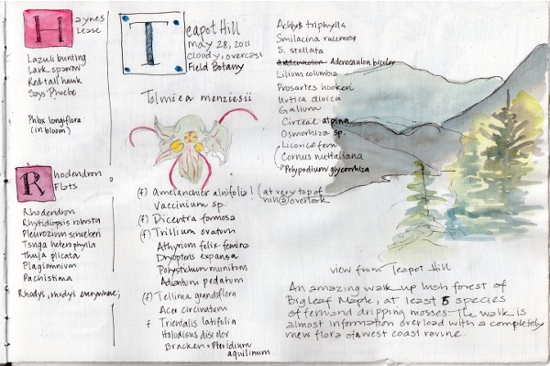 Haynes
Lease
Lazuli bunting
Lark sparrow
Red tail hawk
Says Phoebe
Phlox longiflora
(in bloom)
Rhododendron
Flats
Rhododendron
Rhytidiopsis robusta
Pleurozium schreberi
Tsuga heterophylla
Thuja plicata
Plagiomnium
Pachistima
Rhodys, rhodys everywhere;
Teapot Hill
May 28, 2011
cloudy, overcast
Field Botany
Tolmiea menziesii
(f) Amelanchier alnifolia (at very top of
hill @ overlook
Vaccinium sp.
(f) Dicentra formosa
(f) Trillium ovatum
Athyrium felix-femina
Dryopteris expansa
Polystichum munitum
Adiantum pedatum
(f) Tellima grandiflora
Acer circinatum
f Trientalis latifolia
Holodiscus discolor
Bracken = Pteridium
aquilinum
Achlys triphylla
Smilacina racemosa
S. stellata
Adenocaulon bicolor
Lilium columbia
Prosartes hookeri
Urtica dioica
Galium
Circeae alpina
Osmorhiza sp.
Licorice fern
Cornus nuttaliana
Polypodium glycerrhiza
view from Teapot Hill
An amazing walk up lush forest of
Big Leaf Maple, at least 5 species
of fern and dripping mosses. The walk is
almost information overload with a completely
new flora of a west coast ravine.